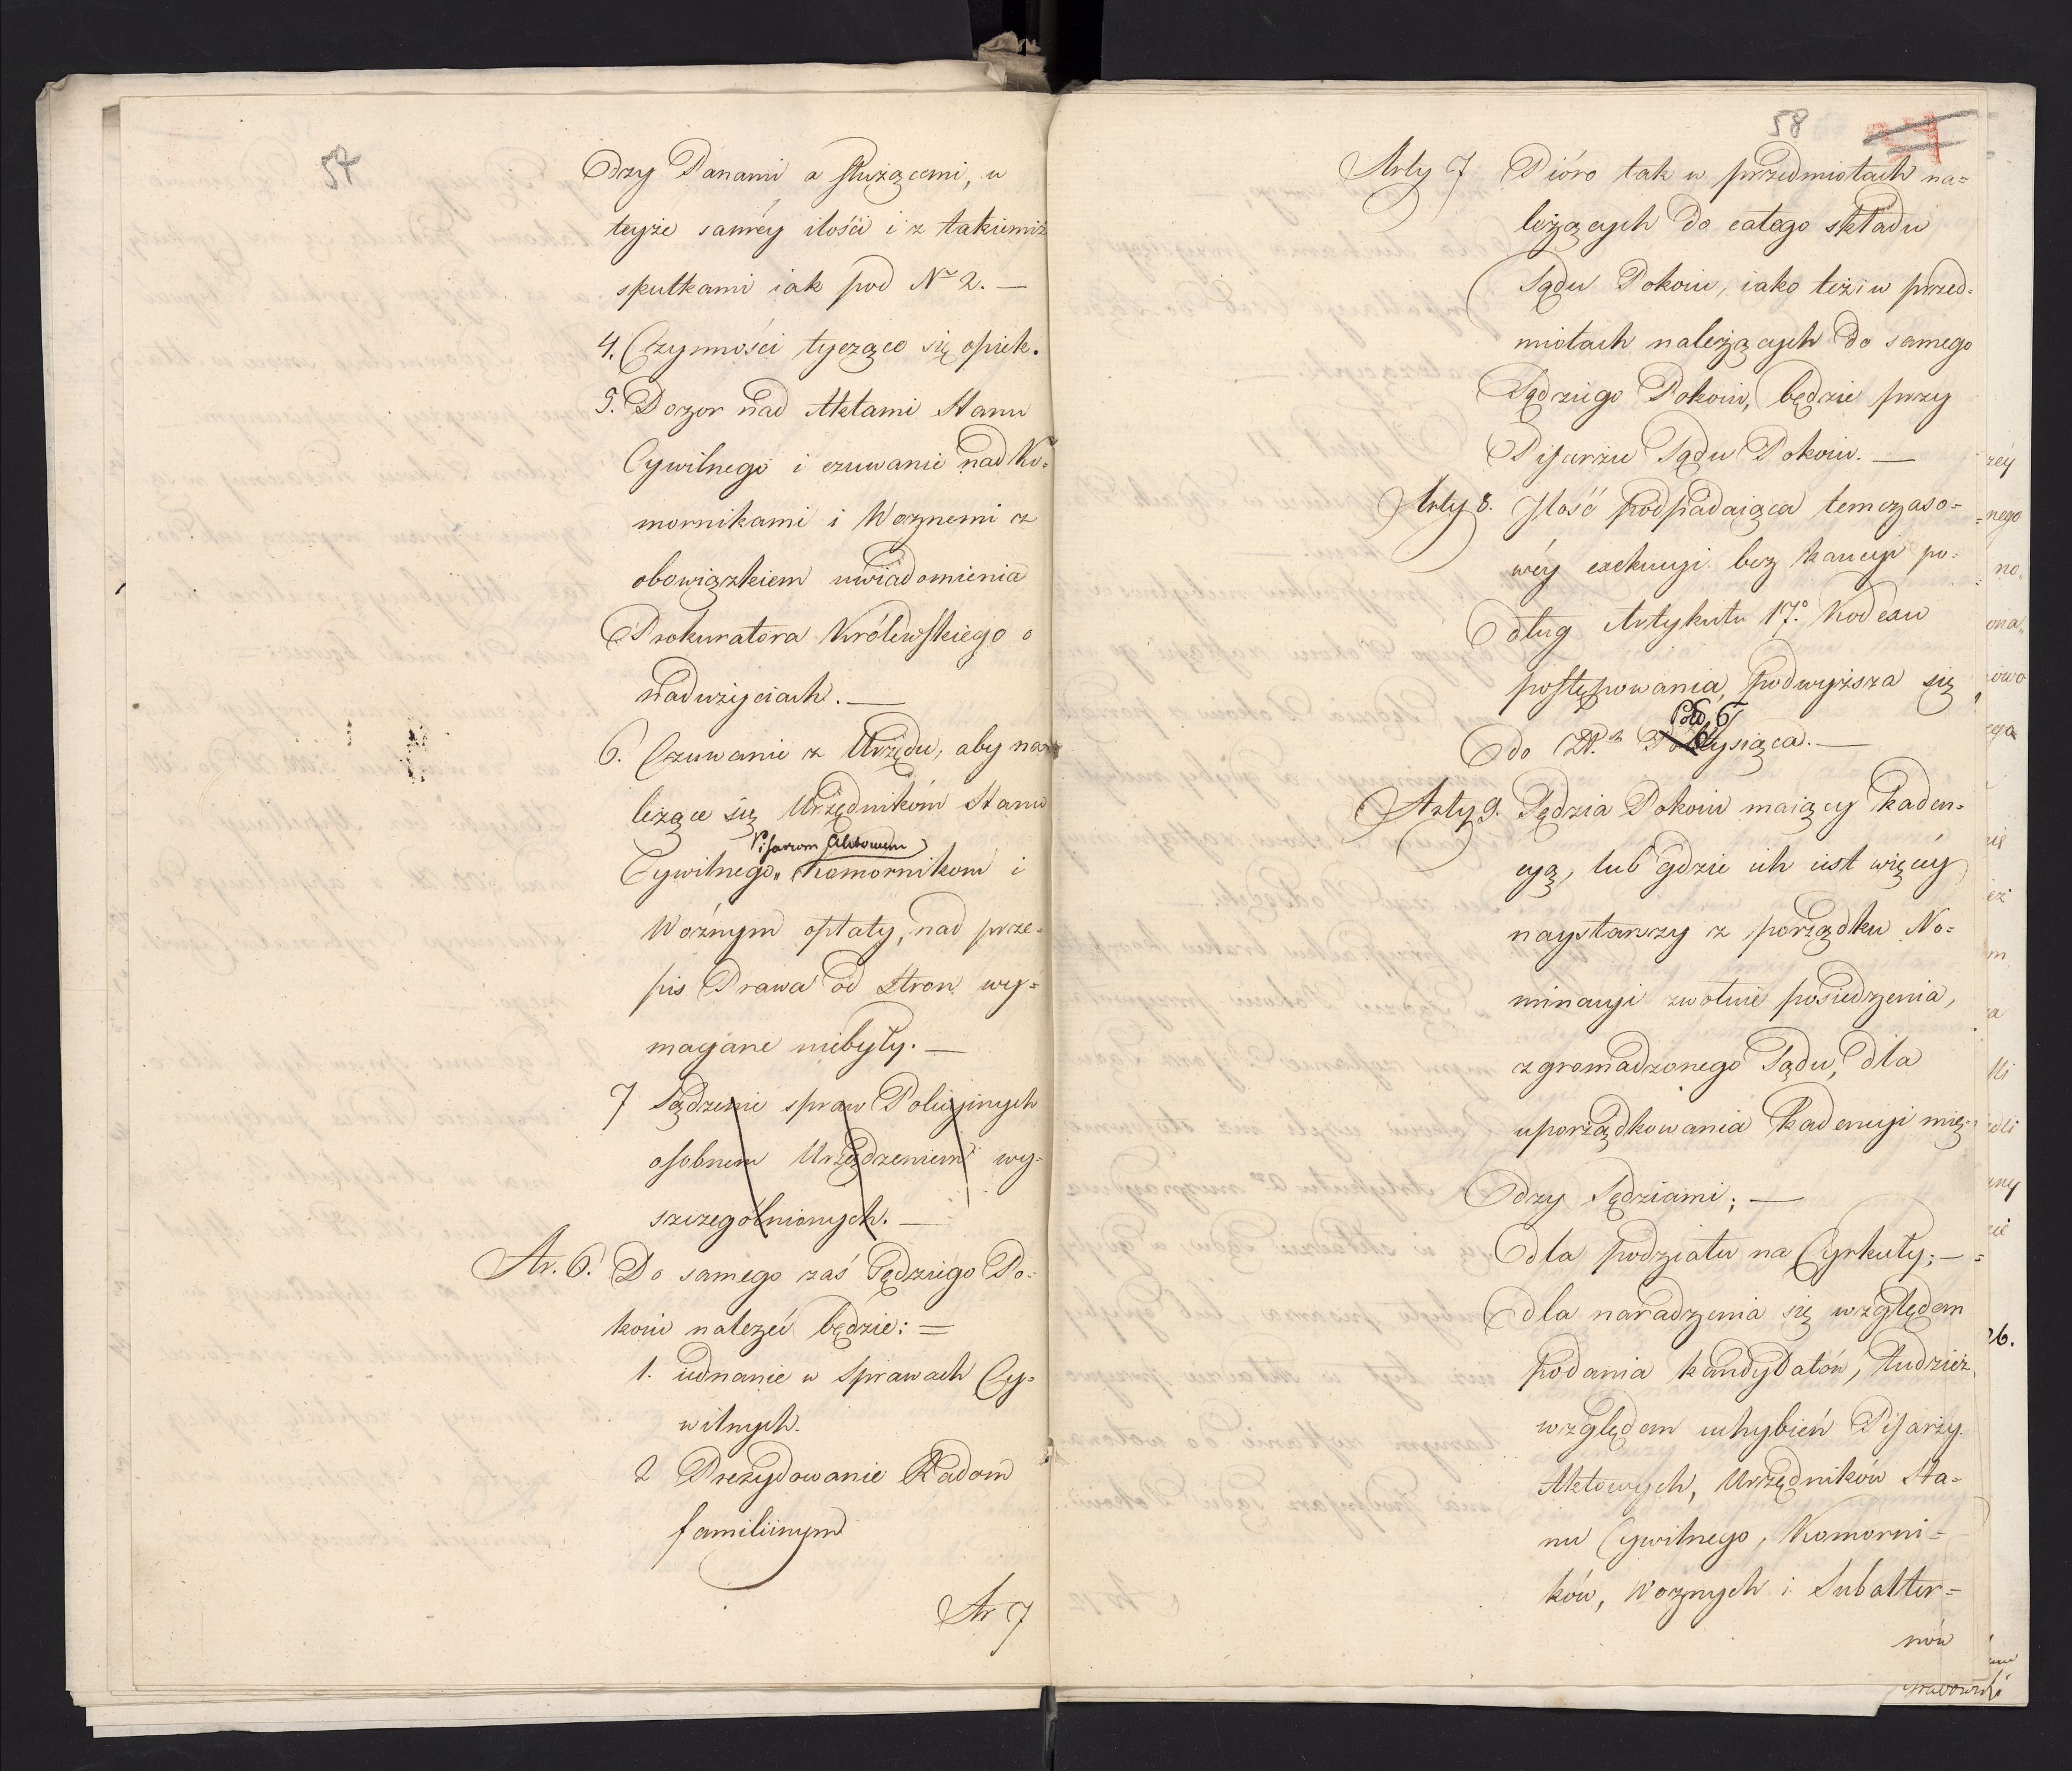 57
dzy Panami a służącemi, w
teyże saméy ilości i z takiemiż
skutkami iak pod Nr 2. —
4. Czynności tyczące się opiek.
5. Dozor nad Aktami Stanu
Cywilnego i czuwanie nad Ko=
mornikami i Woznemi z
obowiązkiem uwiadomienia
Prokuratora Królewskiego o
nadużyciach. —
6. Czuwanie z Urzędu, aby na=
leżące się Urzędnikóm Stanu
Pisarzom Aktowem
Cywilnego „ Komornikom i
Woźnym opłaty, nad prze=
pis Prawa od Stron wy=
magane niebyły. —
7 Sądzenie spraw Policyinych
osobnem Urządzeniem wy=
szczególnionych. —
Ar. 6. Do samego zaś Sędziego Po=
koiu należéć będzie: =
1. iednanie w Sprawach Cy=
wilnych.
2 Prezydowanie Radom
familiinym
Ar 7
58
Arty 7 Pióro tak w przedmiotach na=
leżących do całego składu
Sądu Pokoiu, iako też i w przed=
miotach należących do samego
Sędziego Pokoiu, będzie przy
Pisarzu Sądu Pokoiu. —
Arty 8. Ilość podpadaiąca temczaso=
wéy exekucyi bez kaucyi po=
dług Artykułu 17º Kodexu
postępowania, podwyższa się
do Zł. tysiąca. —
Arty 9. Sędzia Pokoiu maiący kaden=
cyą, lub gdzie ich iest więcéy
naystarszy z porządku No=
minacyi zwołuie posiedzenia,
zgromadzonego Sądu, dla
uporządkowania Kadencyi mię=
dzy Sędziami; —
dla podziału na Cyrkuły; —
dla naradzenia się względem
podania kandydatów, tudzież
względem uchybień Pisarzy
Aktowych, Urzędników Sta=
nu Cywilnego, Komorni=
ków, Woznych i Subalter=
nów